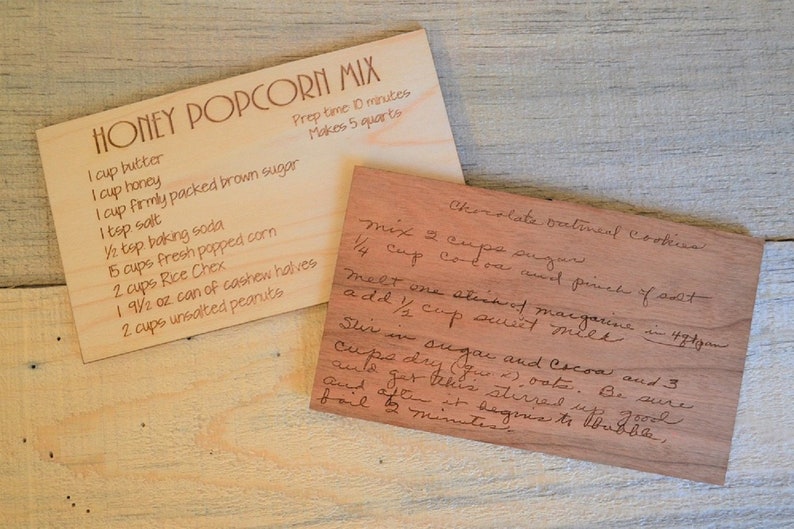 HONEY POPCORN MIX
Prep time: 10 minutes
Makes 5 quarts
1 cup butter
1 cup honey
1 cup firmly packed brown sugar
1 tsp salt
½ tsp baking soda
15 cups fresh popped corn
2 cups Rice Chex
1 9½ oz can of cashew halves
2 cups unsalted peanuts
Chocolate Oatmeal Cookies
Mix 2 cups sugar
¼ cup cocoa and pinch of salt
Melt one stick of margarine in 4qt pan
add ½ cup sweet milk
Stir in sugar and cocoa and 3
cups dry (quick) oats. Be sure
and get this stirred up good
and after it begins to bubble,
boil 2 minutes.